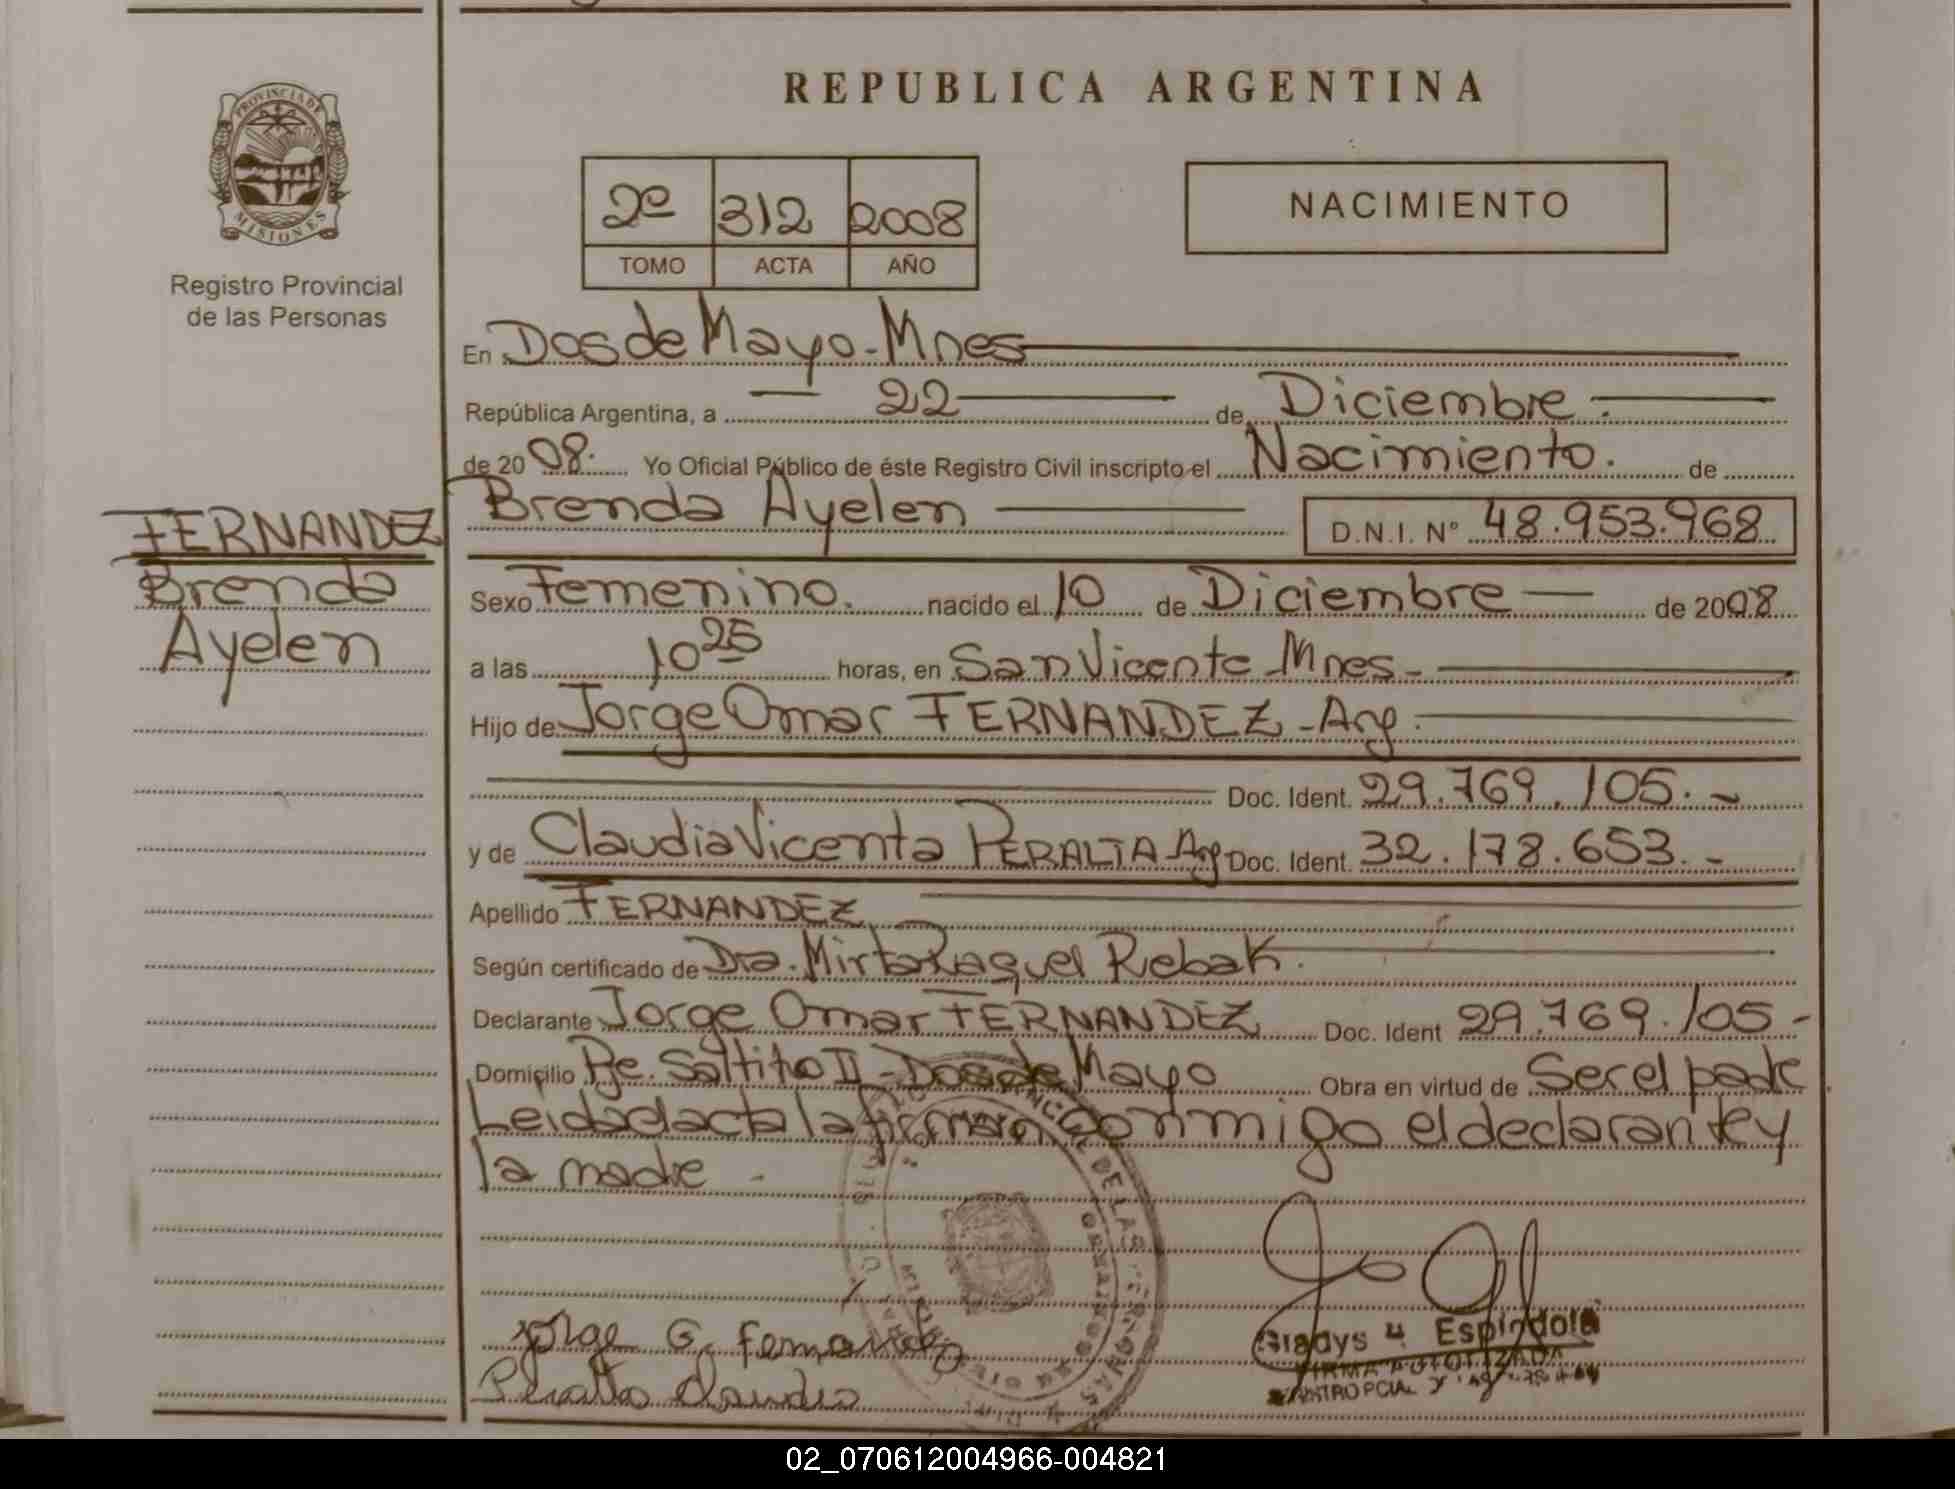 REPUBLICA ARGENTINA
PROVINCIA DE
MISIONES
Registro Provincial
de las Personas
2º 312 2008
TOMO ACTA AÑO
NACIMIENTO
En Dos de Mayo - Mnes
República Argentina, a 22 de Diciembre.
de 2008. Yo Oficial Público de éste Registro Civil inscripto el Nacimiento. de
FERNANDEZ
Brenda
Ayelen
Brenda Ayelen D.N.I. Nº 48.953.968
Sexo Femenino. nacido el 10 de Diciembre de 2008
a las 10 25 horas, en San Vicente Mnes -
Hijo de Jorge Omar FERNANDEZ - Arg.
Doc. Ident. 29.769.105.-
y de Claudia Vicenta PERALTA Arg Doc. Ident. 32.178.653.-
Apellido FERNANDEZ
Según certificado de Dra. Mirta Raquel Rebak.
Declarante Jorge Omar FERNANDEZ Doc. Ident 29.769.105-
Domicilio Pje. Saltito II - Dos de Mayo Obra en virtud de Ser el padre
Leida el acta la firman conmigo el declarante y
la madre -
DE LAS PERSONAS
Jorge G. Fernandez
Peralta Claudia
Gladys Espindola
FIRMA AUTORIZADA
02_070612004966-004821